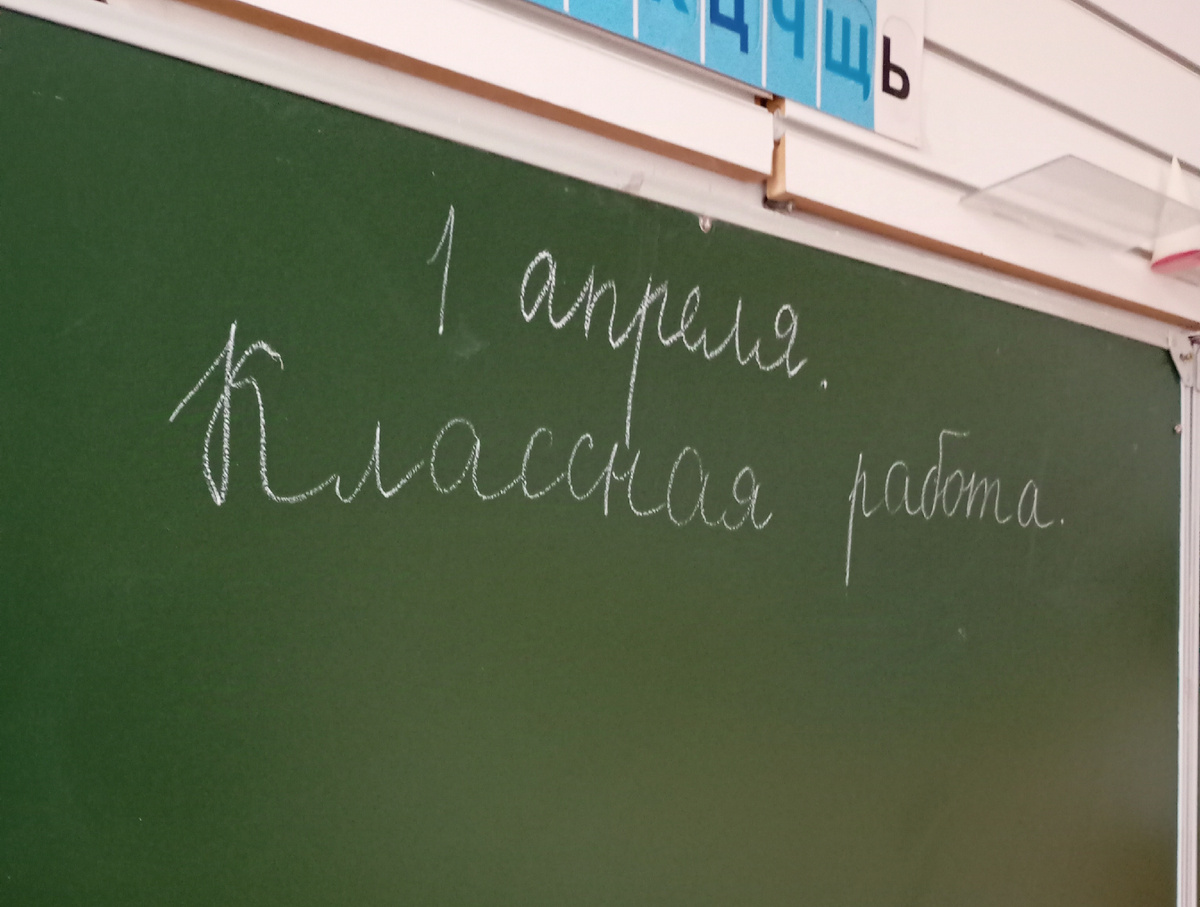 Ц Ч Щ Ь
1 апреля.
Классная работа.